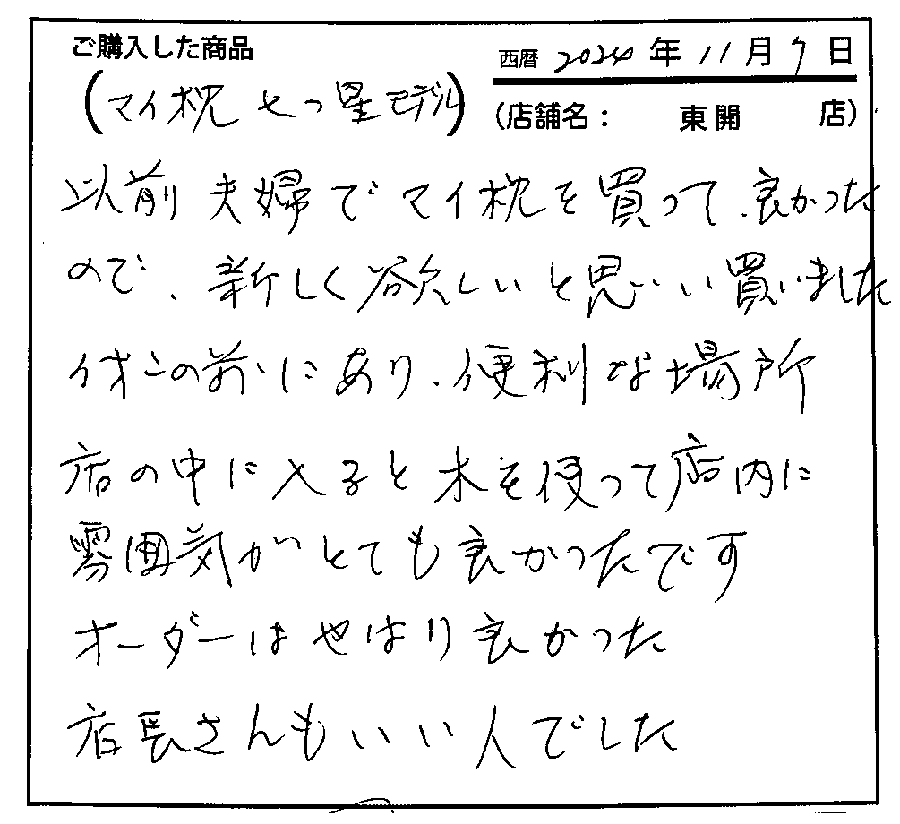 ご購入した商品
西暦 2024 年 11 月 9 日
(マイ枕 七つ星モデル)
(店舗名: 東開 店)
以前 夫婦で マイ枕を買って、良かった
ので、新しく欲しいと思いい買いました
イオンの前にあり、便利な場所
店の中に入ると木を使って店内に
雰囲気がとても良かったです
オーダーはやはり良かった
店長さんもいい人でした